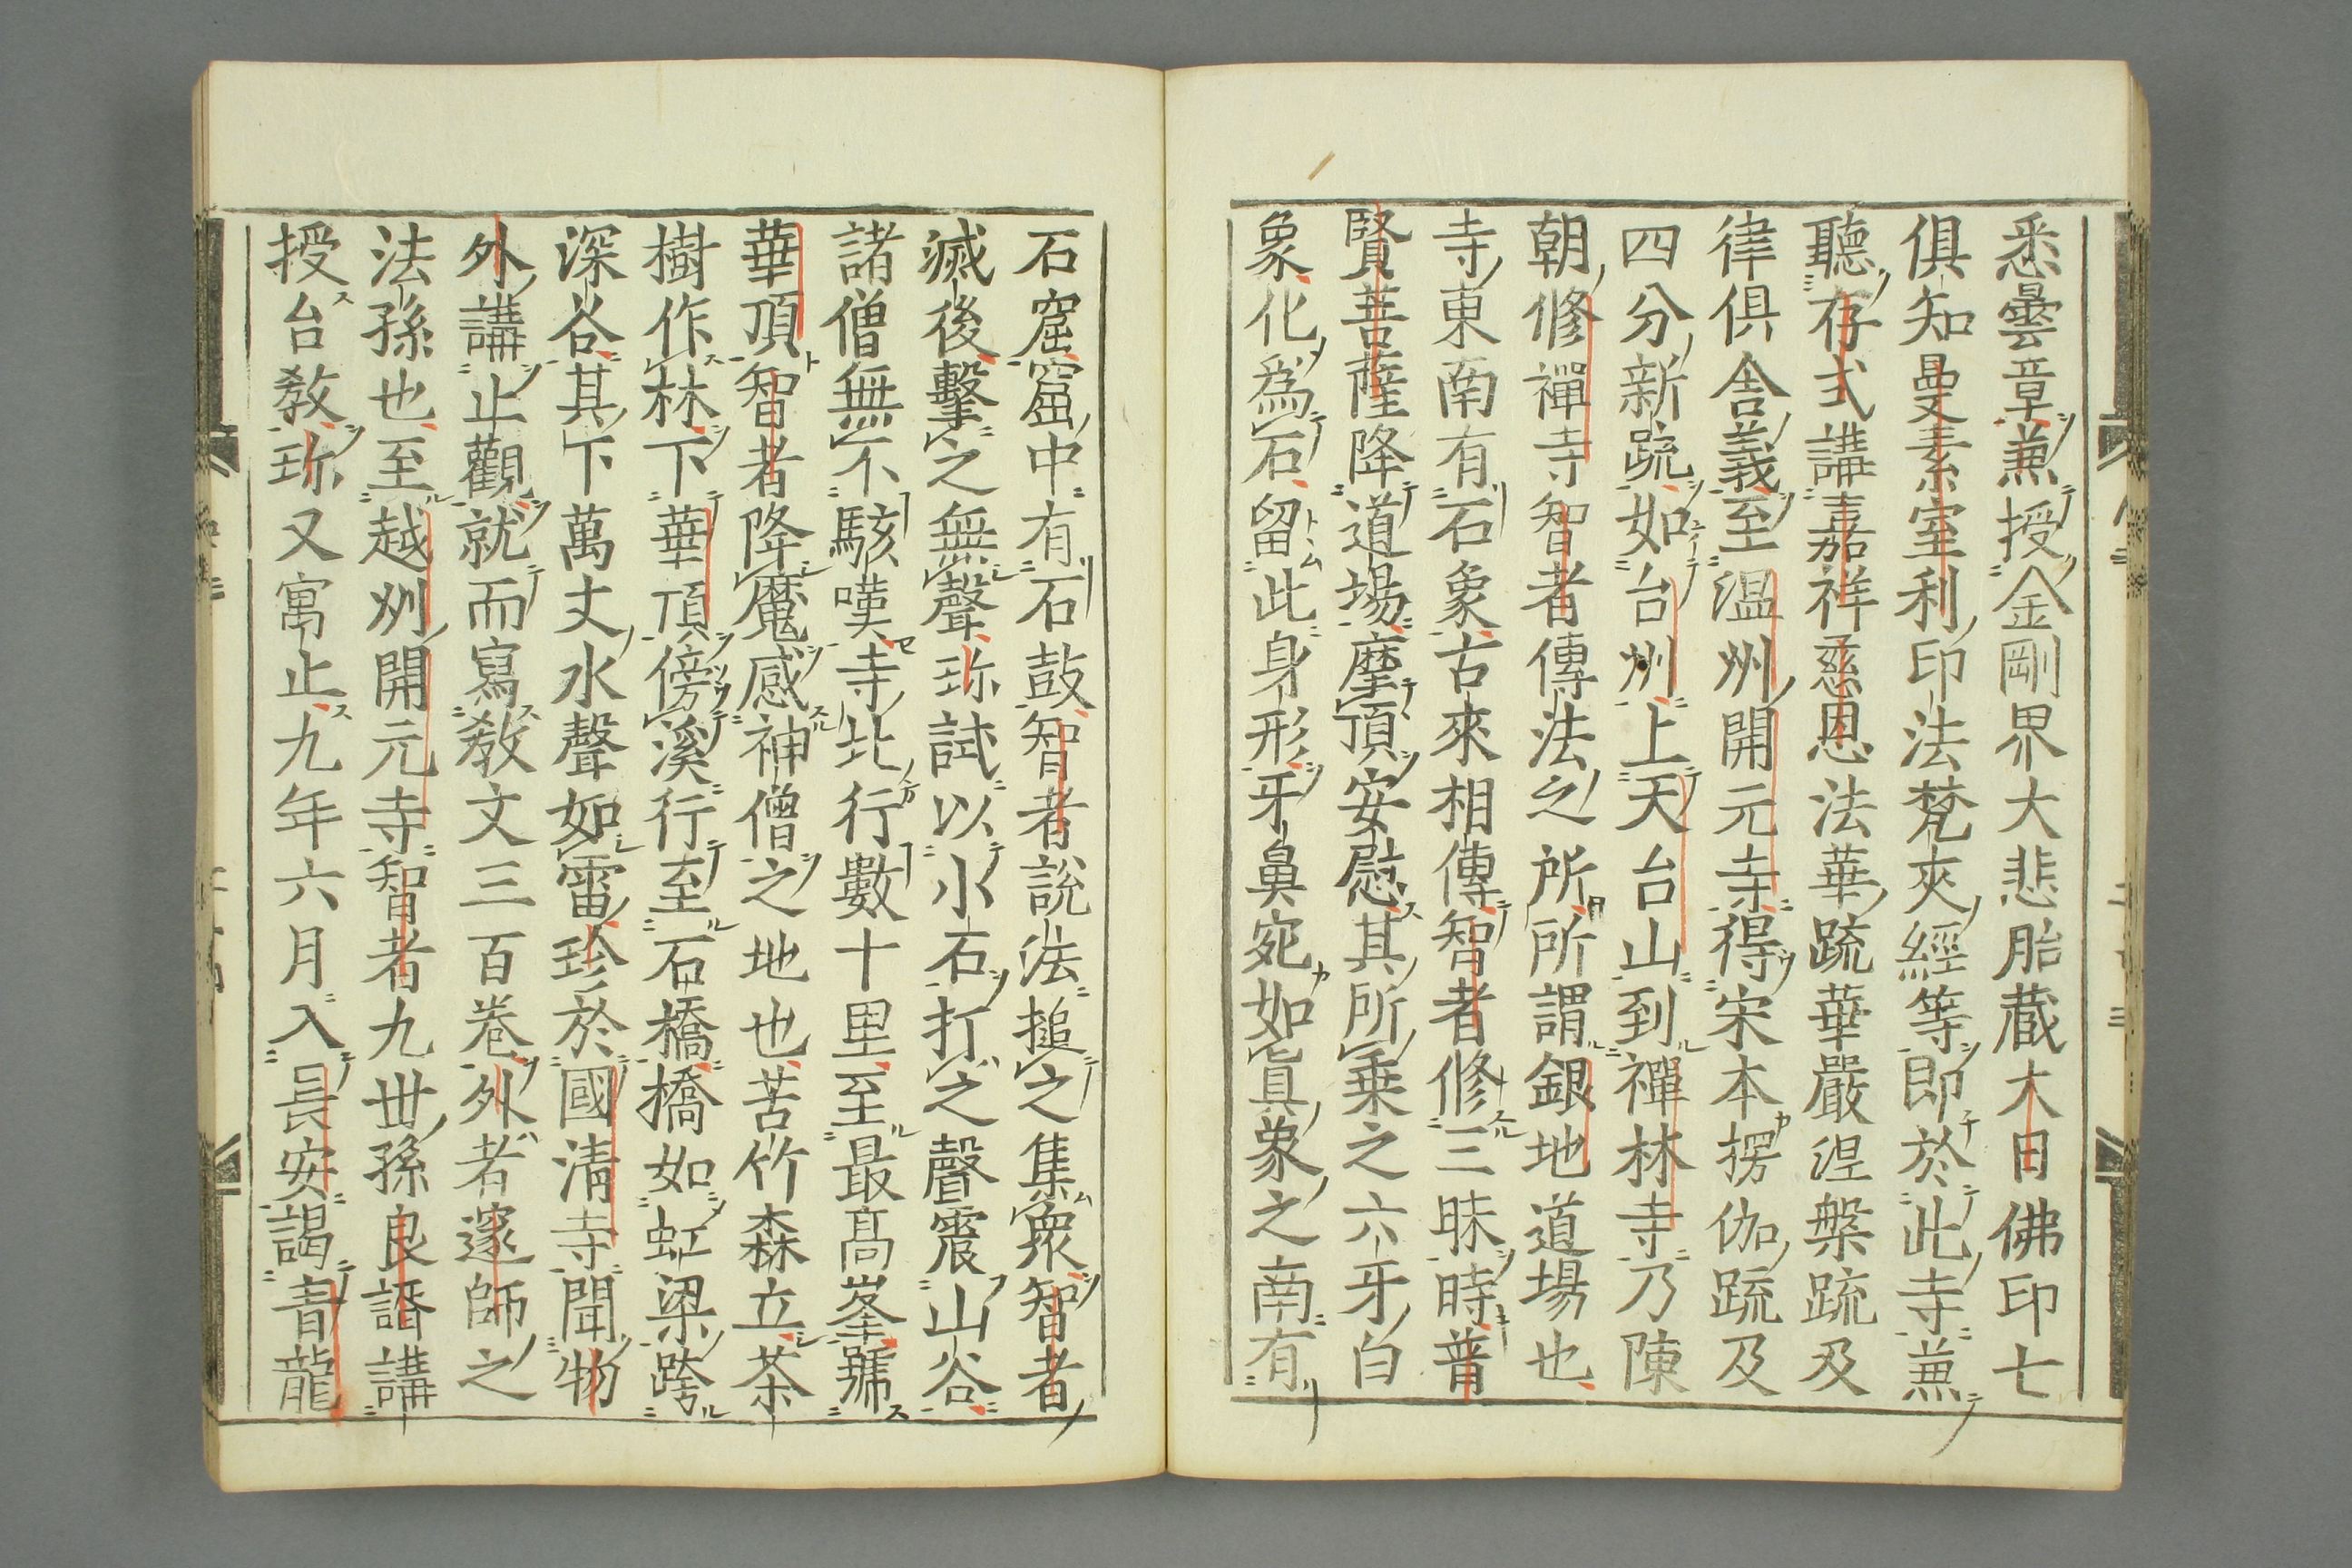 悉曇章兼授金剛界大悲胎蔵大日佛印七
俱知曼素室利印法梵夾經等即於此寺兼
聽存式講嘉祥慈恩法華䟽華嚴涅槃䟽及
律俱舎義至温州開元寺得宋本楞伽䟽及
四分新䟽如台州上天台山到禪林寺乃陳
朝修禪寺智者傳法之所所謂銀地道場也
寺東南有石象古來相傳智者修三昧時普
賢菩薩降道場摩頂安慰其所乗之六牙白
象化爲石留此身形牙鼻宛如眞象之南有
石窟窟中有石鼓智者說法搥之集衆智者
滅後擊之無聲珎試以小石打之聲震山谷
諸僧無不駭嘆寺北行數十里至最髙峯號
華頂智者降魔感神僧之地也苦竹森立茶
樹作林下華頂傍溪行至石橋橋如虹梁跨
深谷其下萬丈水聲如雷珍於國清寺聞物
外講止觀就而寫教文三百卷外者邃師之
法孫也至越州開元寺智者九世孫良諝講
授台教珎又寓止九年六月入長安謁青龍